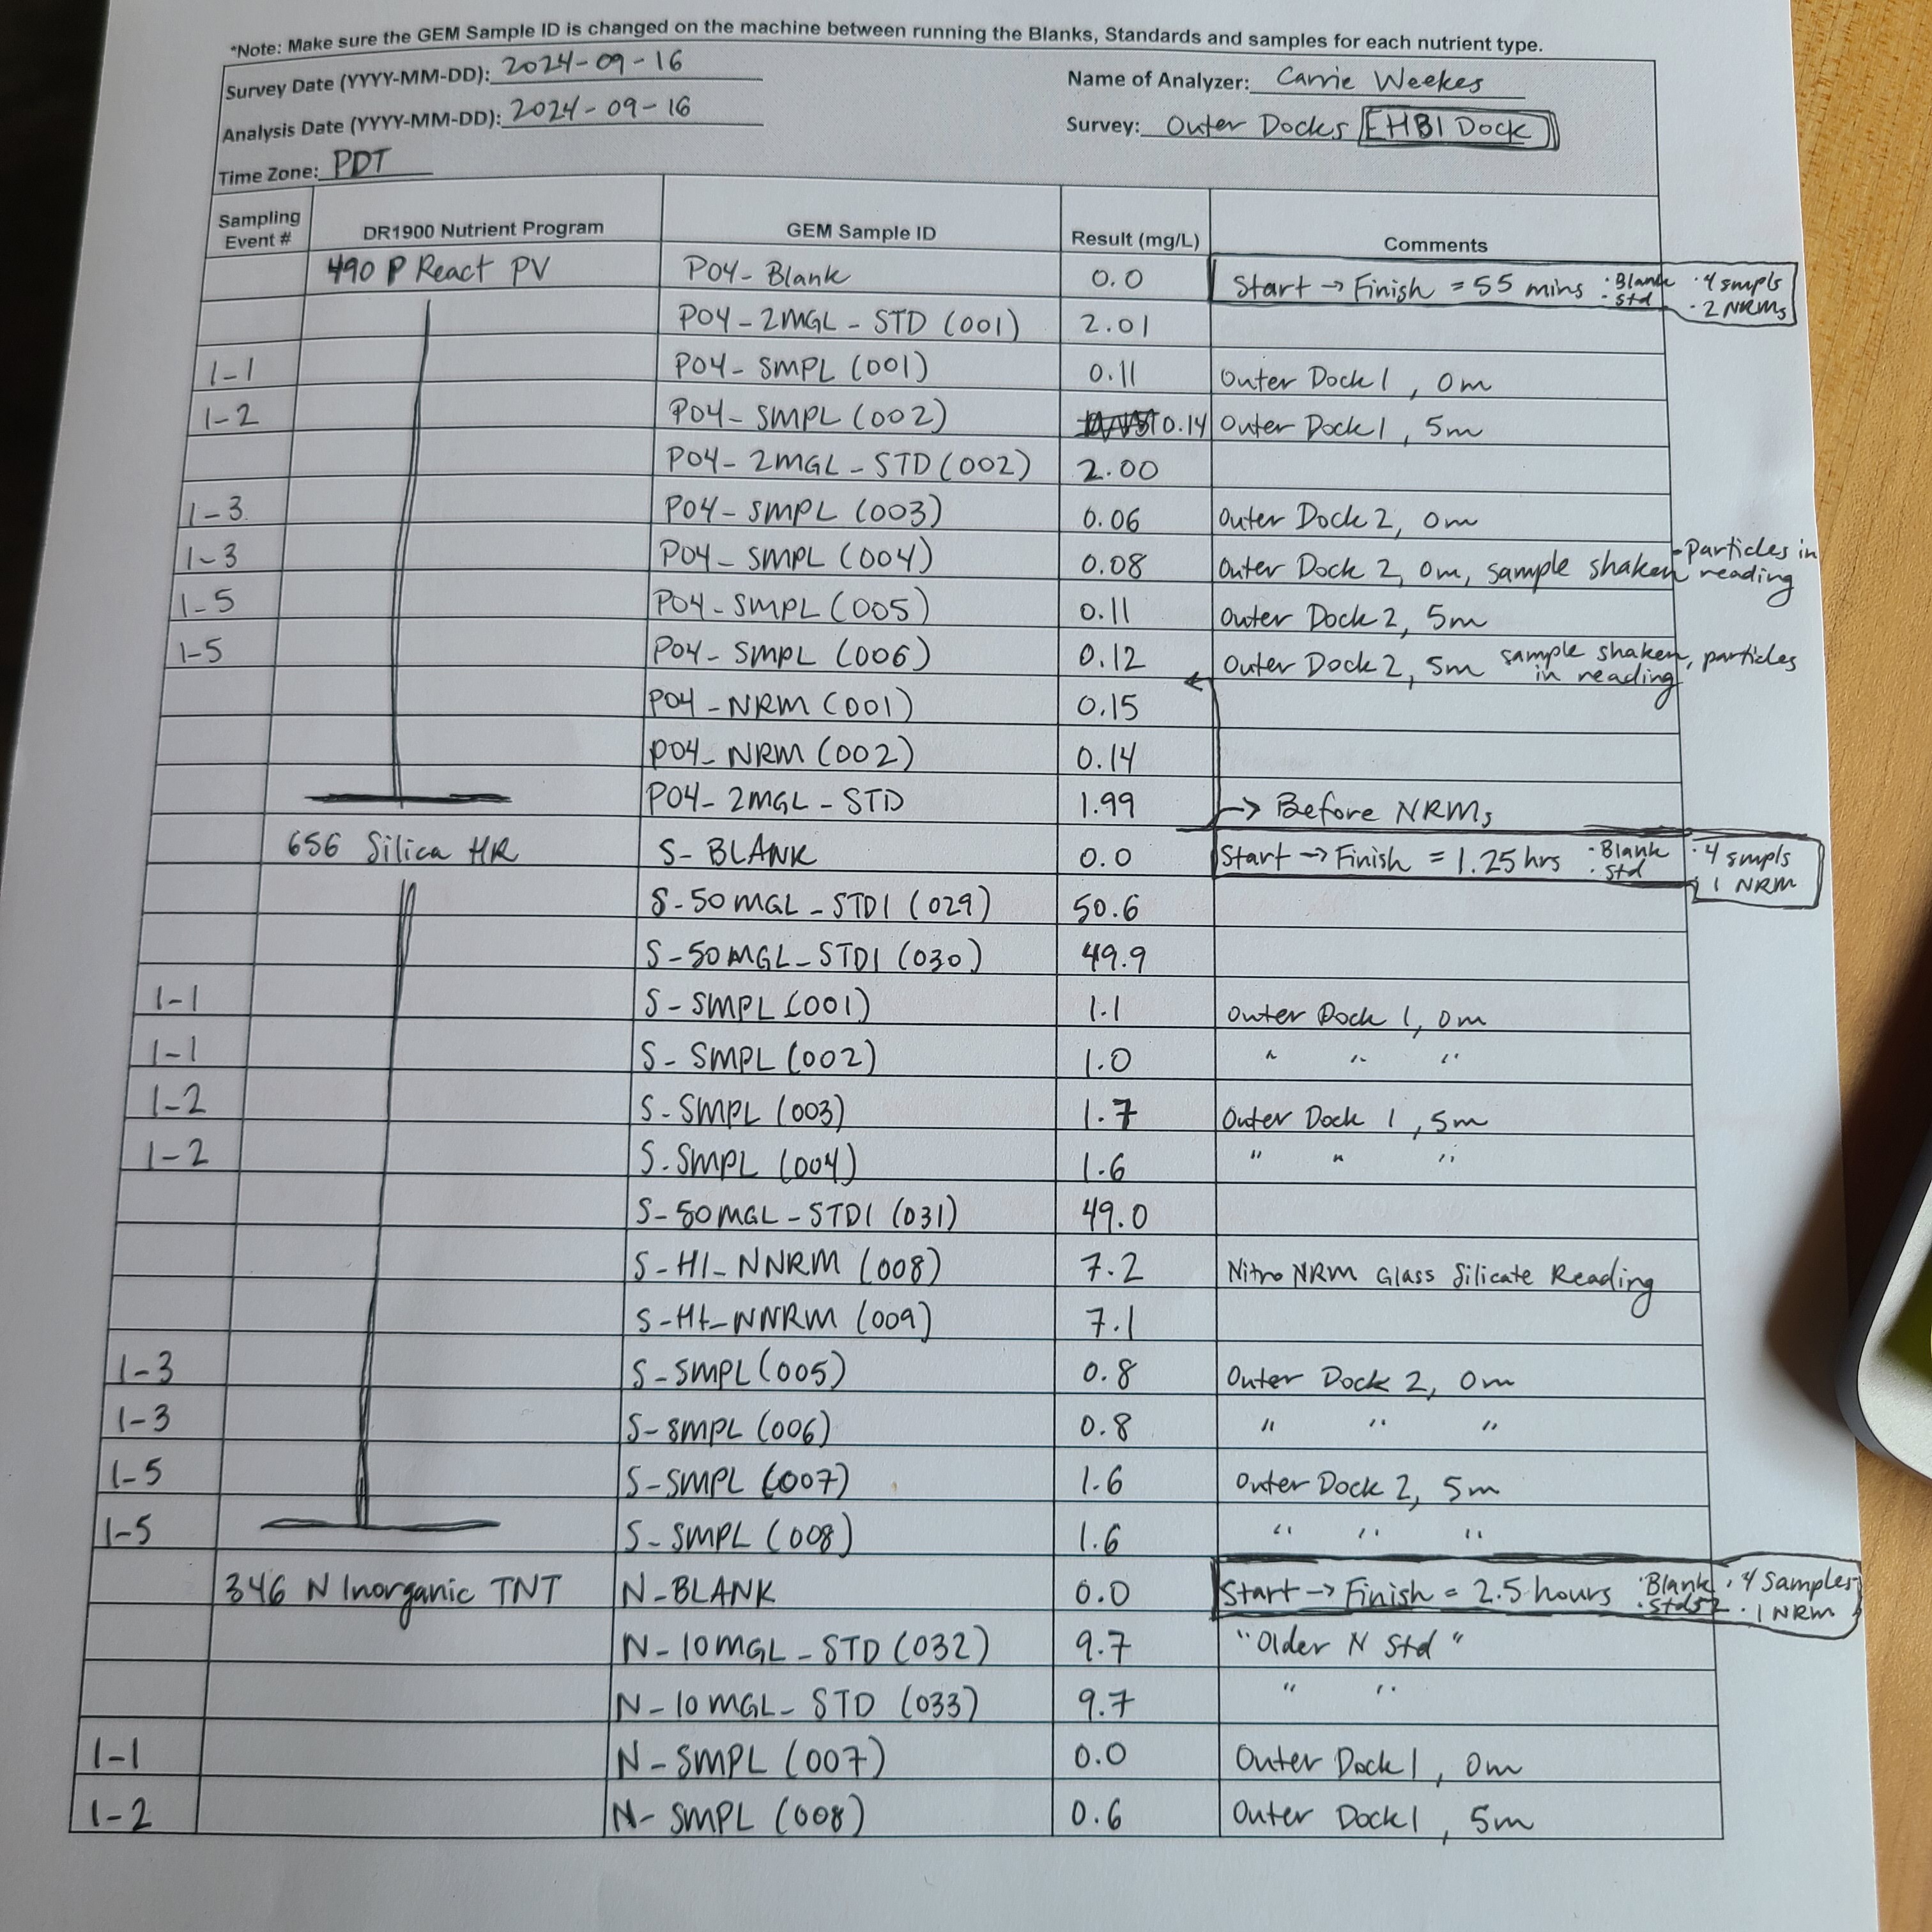 *Note: Make sure the GEM Sample ID is changed on the machine between running the Blanks, Standards and samples for each nutrient type.
Survey Date (YYYY-MM-DD): 2024-09-16 Name of Analyzer: Carrie Weekes
Analysis Date (YYYY-MM-DD): 2024-09-16 Survey: Outer Docks [HBI Dock]
Time Zone: PDT
Sampling Event # DR1900 Nutrient Program GEM Sample ID Result (mg/L) Comments
490 P React PV PO4-Blank 0.0 Start → Finish = 55 mins · Blank · Std · 4 smpls · 2 NRMs
PO4-2MGL-STD (001) 2.01
1-1 PO4-SMPL (001) 0.11 Outer Dock 1, 0m
1-2 PO4-SMPL (002) 0.14 Outer Dock 1, 5m
PO4-2MGL-STD (002) 2.00
1-3 PO4-SMPL (003) 0.06 Outer Dock 2, 0m
1-3 PO4-SMPL (004) 0.08 Outer Dock 2, 0m, sample shaken - particles in reading
1-5 PO4-SMPL (005) 0.11 Outer Dock 2, 5m
1-5 PO4-SMPL (006) 0.12 Outer Dock 2, 5m sample shaken, particles in reading
PO4-NRM (001) 0.15
PO4-NRM (002) 0.14
PO4-2MGL-STD 1.99 → Before NRMs
656 Silica HR S-BLANK 0.0 Start → Finish = 1.25 hrs · Blank · Std · 4 smpls 1 NRM
S-50MGL-STD1 (029) 50.6
S-50MGL-STD1 (030) 49.9
1-1 S-SMPL (001) 1.1 Outer Dock 1, 0m
1-1 S-SMPL (002) 1.0 " " "
1-2 S-SMPL (003) 1.7 Outer Dock 1, 5m
1-2 S-SMPL (004) 1.6 " " "
S-50MGL-STD1 (031) 49.0
S-HI-NNRM (008) 7.2 Nitro NRM Glass Silicate Reading
S-HI-NNRM (009) 7.1
1-3 S-SMPL (005) 0.8 Outer Dock 2, 0m
1-3 S-SMPL (006) 0.8 " " "
1-5 S-SMPL (007) 1.6 Outer Dock 2, 5m
1-5 S-SMPL (008) 1.6 " " "
346 N Inorganic TNT N-BLANK 0.0 Start → Finish = 2.5 hours · Blank · Stds 2 · 4 Samples · 1 NRM
N-10MGL-STD (032) 9.7 "Older N Std"
N-10MGL-STD (033) 9.7 " "
1-1 N-SMPL (007) 0.0 Outer Dock 1, 0m
1-2 N-SMPL (008) 0.6 Outer Dock 1, 5m